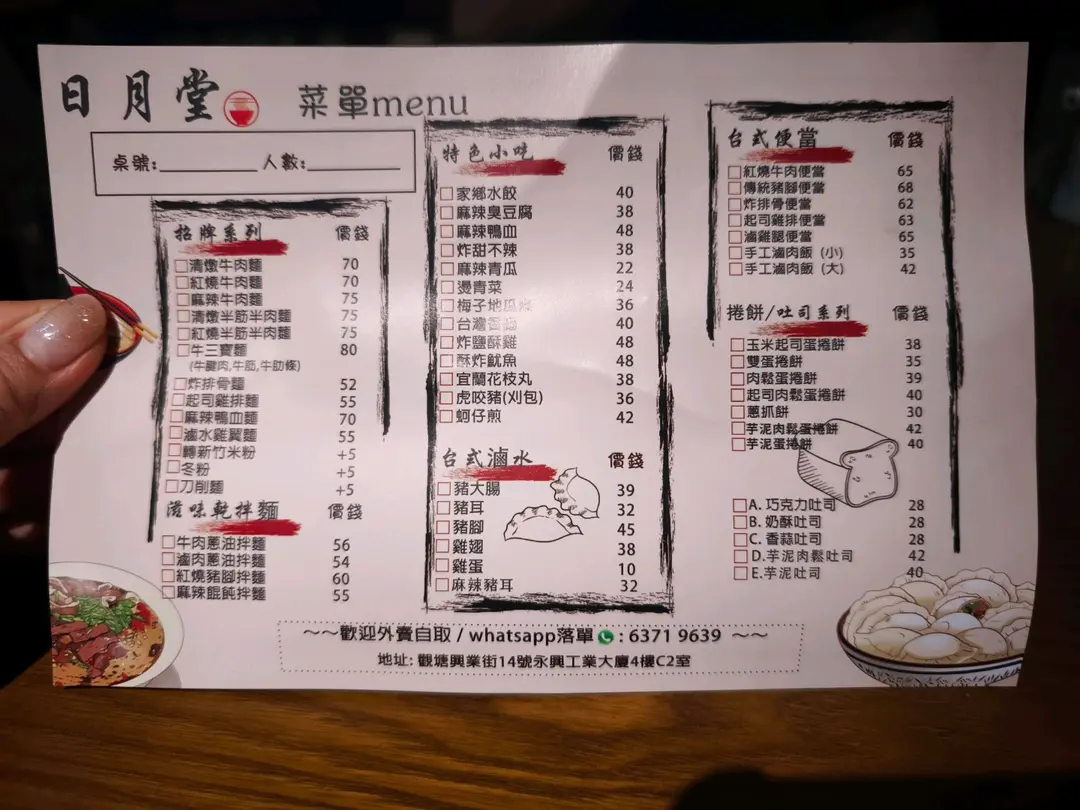 日月堂 菜單menu
桌號:________ 人數:________
招牌系列 價錢
清燉牛肉麵 70
紅燒牛肉麵 70
麻辣牛肉麵 75
清燉半筋半肉麵 75
紅燒半筋半肉麵 75
牛三寶麵 80
(牛腱肉,牛筋,牛肋條)
炸排骨麵 52
起司雞排麵 55
麻辣鴨血麵 70
滷水雞翼麵 55
轉新竹米粉 +5
冬粉 +5
刀削麵 +5
滋味乾拌麵 價錢
牛肉蔥油拌麵 56
滷肉蔥油拌麵 54
紅燒豬腳拌麵 60
麻辣餛飩拌麵 55
特色小吃 價錢
家鄉水餃 40
麻辣臭豆腐 38
麻辣鴨血 48
炸甜不辣 38
麻辣青瓜 22
燙青菜 24
梅子地瓜 36
台灣 40
炸鹽酥雞 48
酥炸魷魚 48
宜蘭花枝丸 38
虎咬豬(刈包) 36
蚵仔煎 42
台式滷水 價錢
豬大腸 39
豬耳 32
豬腳 45
雞翅 38
雞蛋 10
麻辣豬耳 32
台式便當 價錢
紅燒牛肉便當 65
傳統豬腳便當 68
炸排骨便當 62
起司雞排便當 63
滷雞腿便當 65
手工滷肉飯 (小) 35
手工滷肉飯 (大) 42
捲餅/吐司系列 價錢
玉米起司蛋捲餅 38
雙蛋捲餅 35
肉鬆蛋捲餅 39
起司肉鬆蛋捲餅 40
蔥抓餅 30
芋泥肉鬆蛋捲餅 42
芋泥蛋捲餅 40
A. 巧克力吐司 28
B. 奶酥吐司 28
C. 香蒜吐司 28
D.芋泥肉鬆吐司 42
E.芋泥吐司 40
～～歡迎外賣自取 / whatsapp落單 : 6371 9639 ～～
地址: 觀塘興業街14號永興工業大廈4樓C2室